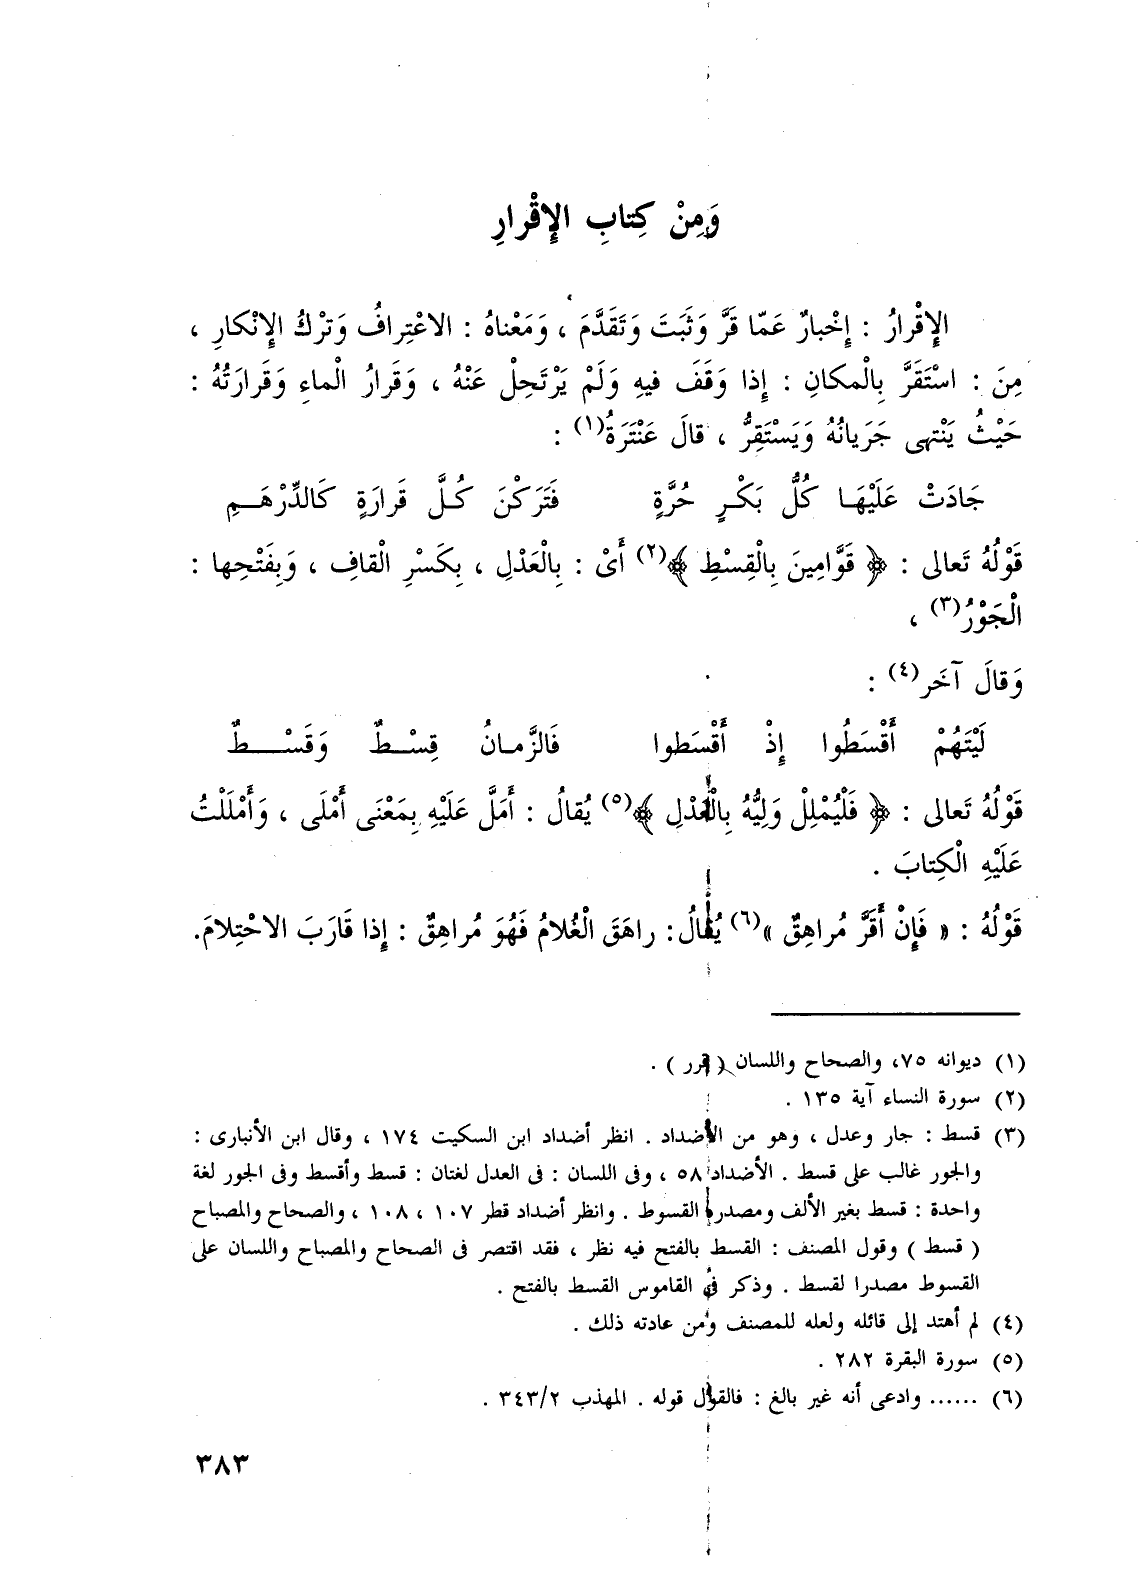 وَمِنْ كِتابِ الإِقْرارِ
الإِقْرارُ : إِخْبارٌ عَمّا قَرَّ وَثَبَتَ وَتَقَدَّمَ ، وَمَعْناهُ : الاعْتِرافُ وَتَرْكُ الإِنْكارِ ،
مِنَ : اسْتَقَرَّ بِالْمكانِ : إِذا وَقَفَ فيهِ وَلَمْ يَرْتَحِلْ عَنْهُ ، وَقَرارُ الْماءِ وَقَرارَتُهُ :
حَيْثُ يَنْتهى جَرَيانُهُ وَيَسْتَقِرُّ ، قالَ عَنْتَرَةُ(١) :
جَادَتْ عَلَيْهَا كُلُّ بَكْرٍ حُرَّةٍ فَتَرَكْنَ كُلَّ قَرارَةٍ كَالدِّرْهَمِ
قَوْلُهُ تَعالى : ﴿ قَوَّامِينَ بِالْقِسْطِ ﴾(٢) أَىْ : بِالْعَدْلِ ، بِكَسْرِ الْقافِ ، وَبِفَتْحِها :
الْجَوْرُ(٣) ،
وَقالَ آخَر(٤) :
لَيْتَهُمْ أَقْسَطُوا إِذْ أَقْسَطوا فَالزَّمانُ قِسْطٌ وَقَسْطٌ
قَوْلُهُ تَعالى : ﴿ فَلْيُمْلِلْ وَلِيُّهُ بِالْعَدْلِ ﴾(٥) يُقالُ : أَمَلَّ عَلَيْهِ بِمَعْنَى أَمْلَى ، وَأَمْلَلْتُ
عَلَيْهِ الْكِتابَ .
قَوْلُهُ : « فَإِنْ أَقَرَّ مُراهِقٌ »(٦) يُقالُ : راهَقَ الْغُلامُ فَهُوَ مُراهِقٌ : إِذا قَارَبَ الاحْتِلامَ.
(١) ديوانه ٧٥، والصحاح واللسان ( قرر ) .
(٢) سورة النساء آية ١٣٥ .
(٣) قسط : جار وعدل ، وهو من الأضداد . انظر أضداد ابن السكيت ١٧٤ ، وقال ابن الأنبارى :
والجور غالب على قسط . الأضداد ٥٨ ، وفى اللسان : فى العدل لغتان : قسط وأقسط وفى الجور لغة
واحدة : قسط بغير الألف ومصدره القسوط . وانظر أضداد قطر ١٠٧ ، ١٠٨ ، والصحاح والمصباح
( قسط ) وقول المصنف : القسط بالفتح فيه نظر ، فقد اقتصر فى الصحاح والمصباح واللسان على
القسوط مصدرا لقسط . وذكر فى القاموس القسط بالفتح .
(٤) لم أهتد إلى قائله ولعله للمصنف ومن عادته ذلك .
(٥) سورة البقرة ٢٨٢ .
(٦) ...... وادعى أنه غير بالغ : فالقول قوله . المهذب ٣٤٣/٢ .
٣٨٣